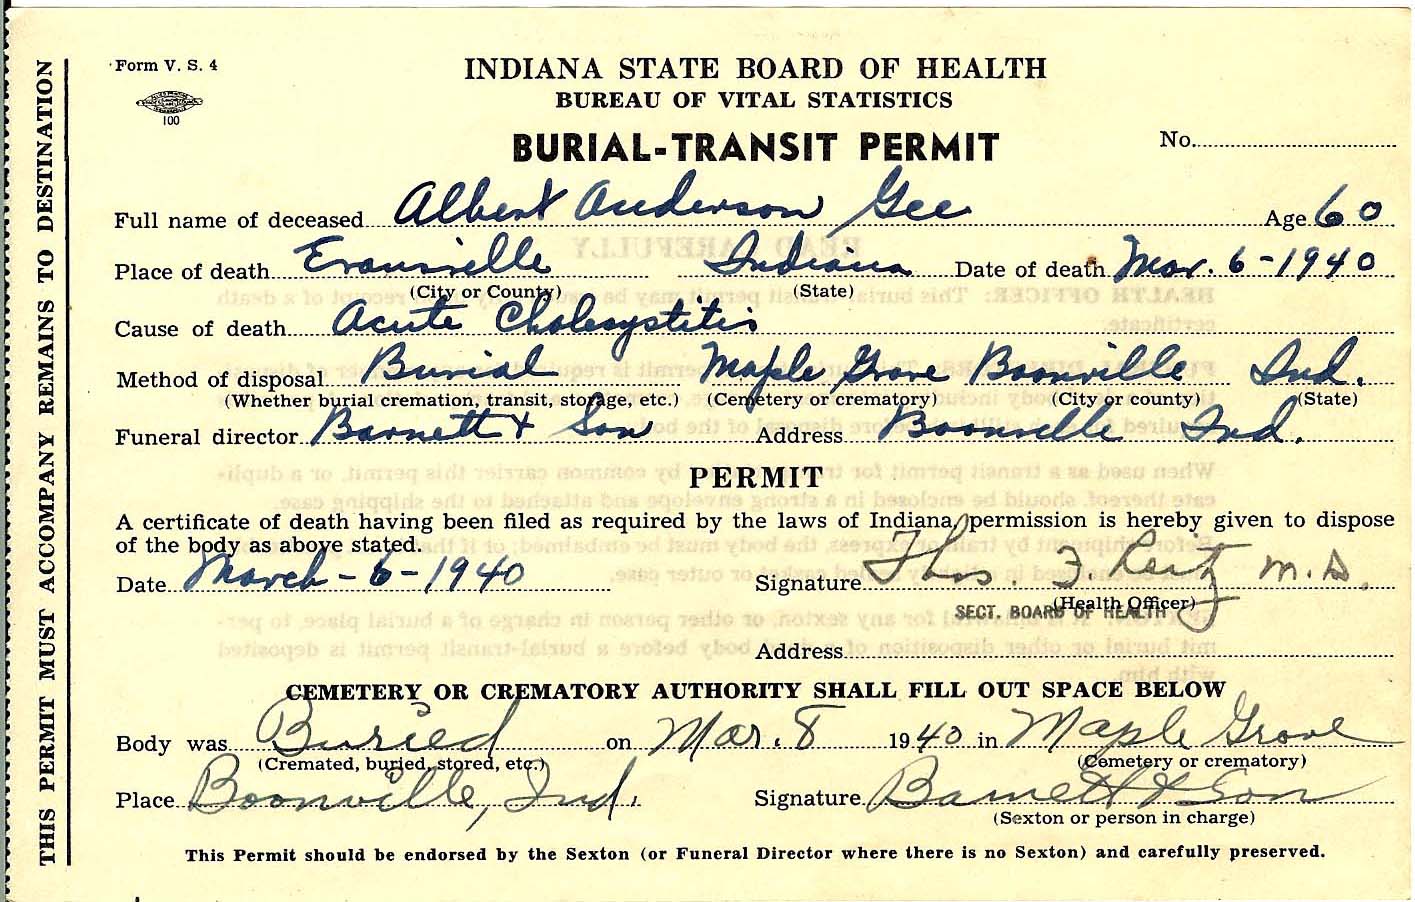 Form V. S. 4
100
INDIANA STATE BOARD OF HEALTH
BUREAU OF VITAL STATISTICS
BURIAL-TRANSIT PERMIT
No.
Full name of deceased Albert Anderson Gee Age 60
Place of death Evansville Indiana Date of death Mar. 6-1940
(City or County) (State)
Cause of death Acute Cholecystitis
Method of disposal Burial Maple Grove Boonville Ind.
(Whether burial cremation, transit, storage, etc.) (Cemetery or crematory) (City or county) (State)
Funeral director Barnett & Son Address Boonville Ind.
PERMIT
A certificate of death having been filed as required by the laws of Indiana, permission is hereby given to dispose
of the body as above stated.
Date March-6-1940 Signature Thos. F. Reitz M.D.
(Health Officer)
SECT. BOARD OF HEALTH
Address
CEMETERY OR CREMATORY AUTHORITY SHALL FILL OUT SPACE BELOW
Body was Buried on Mar. 8 1940 in Maple Grove
(Cremated, buried, stored, etc.) (Cemetery or crematory)
Place Boonville, Ind. Signature Barnett & Son
(Sexton or person in charge)
This Permit should be endorsed by the Sexton (or Funeral Director where there is no Sexton) and carefully preserved.
THIS PERMIT MUST ACCOMPANY REMAINS TO DESTINATION